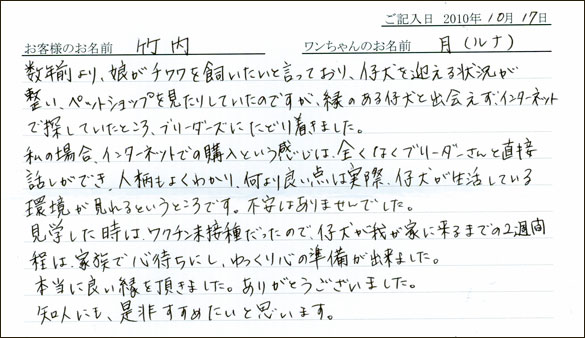 ご記入日 2010年10月17日
お客様のお名前 竹内 ワンちゃんのお名前 月(ルナ)
数年前より、娘がチワワを飼いたいと言っており、仔犬を迎える状況が
整い、ペットショップを見たりしていたのですが、縁のある仔犬と出会えず、インターネット
で探していたところ、ブリーダーズにたどり着きました。
私の場合、インターネットでの購入という感じは、全くなくブリーダーさんと直接
話しができ、人柄もよくわかり、何より良い点は実際、仔犬が生活している
環境が見れるというところです。不安はありませんでした。
見学した時は、ワクチン未接種だったので、仔犬が我が家に来るまでの2週間
程は、家族で心待ちにし、ゆっくり心の準備が出来ました。
本当に良い縁を頂きました。ありがとうございました。
知人にも、是非すすめたいと思います。